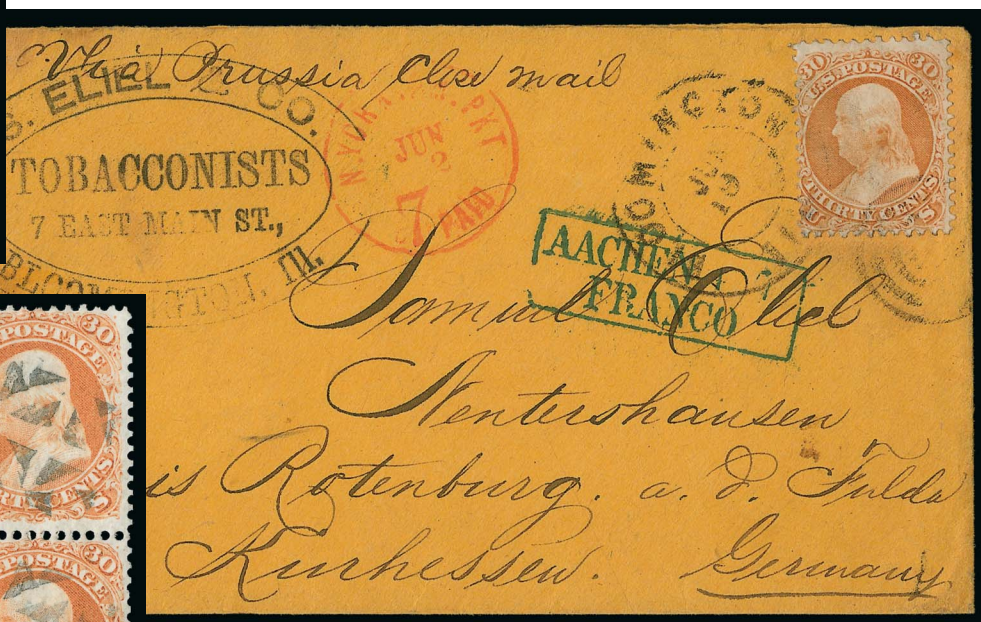 Via Prussia Close mail
S. ELIEL & CO.
TOBACCONISTS
7 EAST MAIN ST.,
BLOOMINGTON, Ill.
N. YORK AM. PKT
JUN
2
7
PAID
OMINGTON
30 30
U.S. POSTAGE
THIRTY CENTS
U S
AACHEN
FRANCO
Samuel Eliel
Nentershausen
is Rotenburg. a. d. Fulda
Kurhessen. Germany
30
POSTAGE
RTY CENTS
S
30
POSTAGE